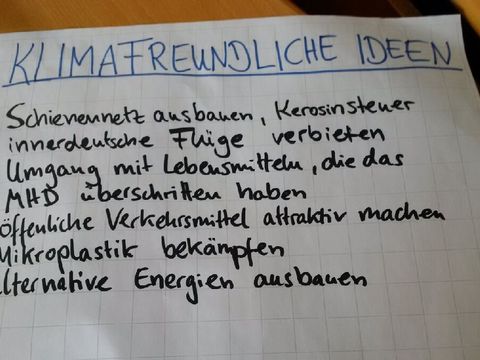 KLIMAFREUNDLICHE IDEEN
Schienennetz ausbauen, Kerosinsteuer
innerdeutsche Flüge verbieten
Umgang mit Lebensmitteln, die das
MHD überschritten haben
öffenliche Verkehrsmittel attraktiv machen
Mikroplastik bekämpfen
alternative Energien ausbauen